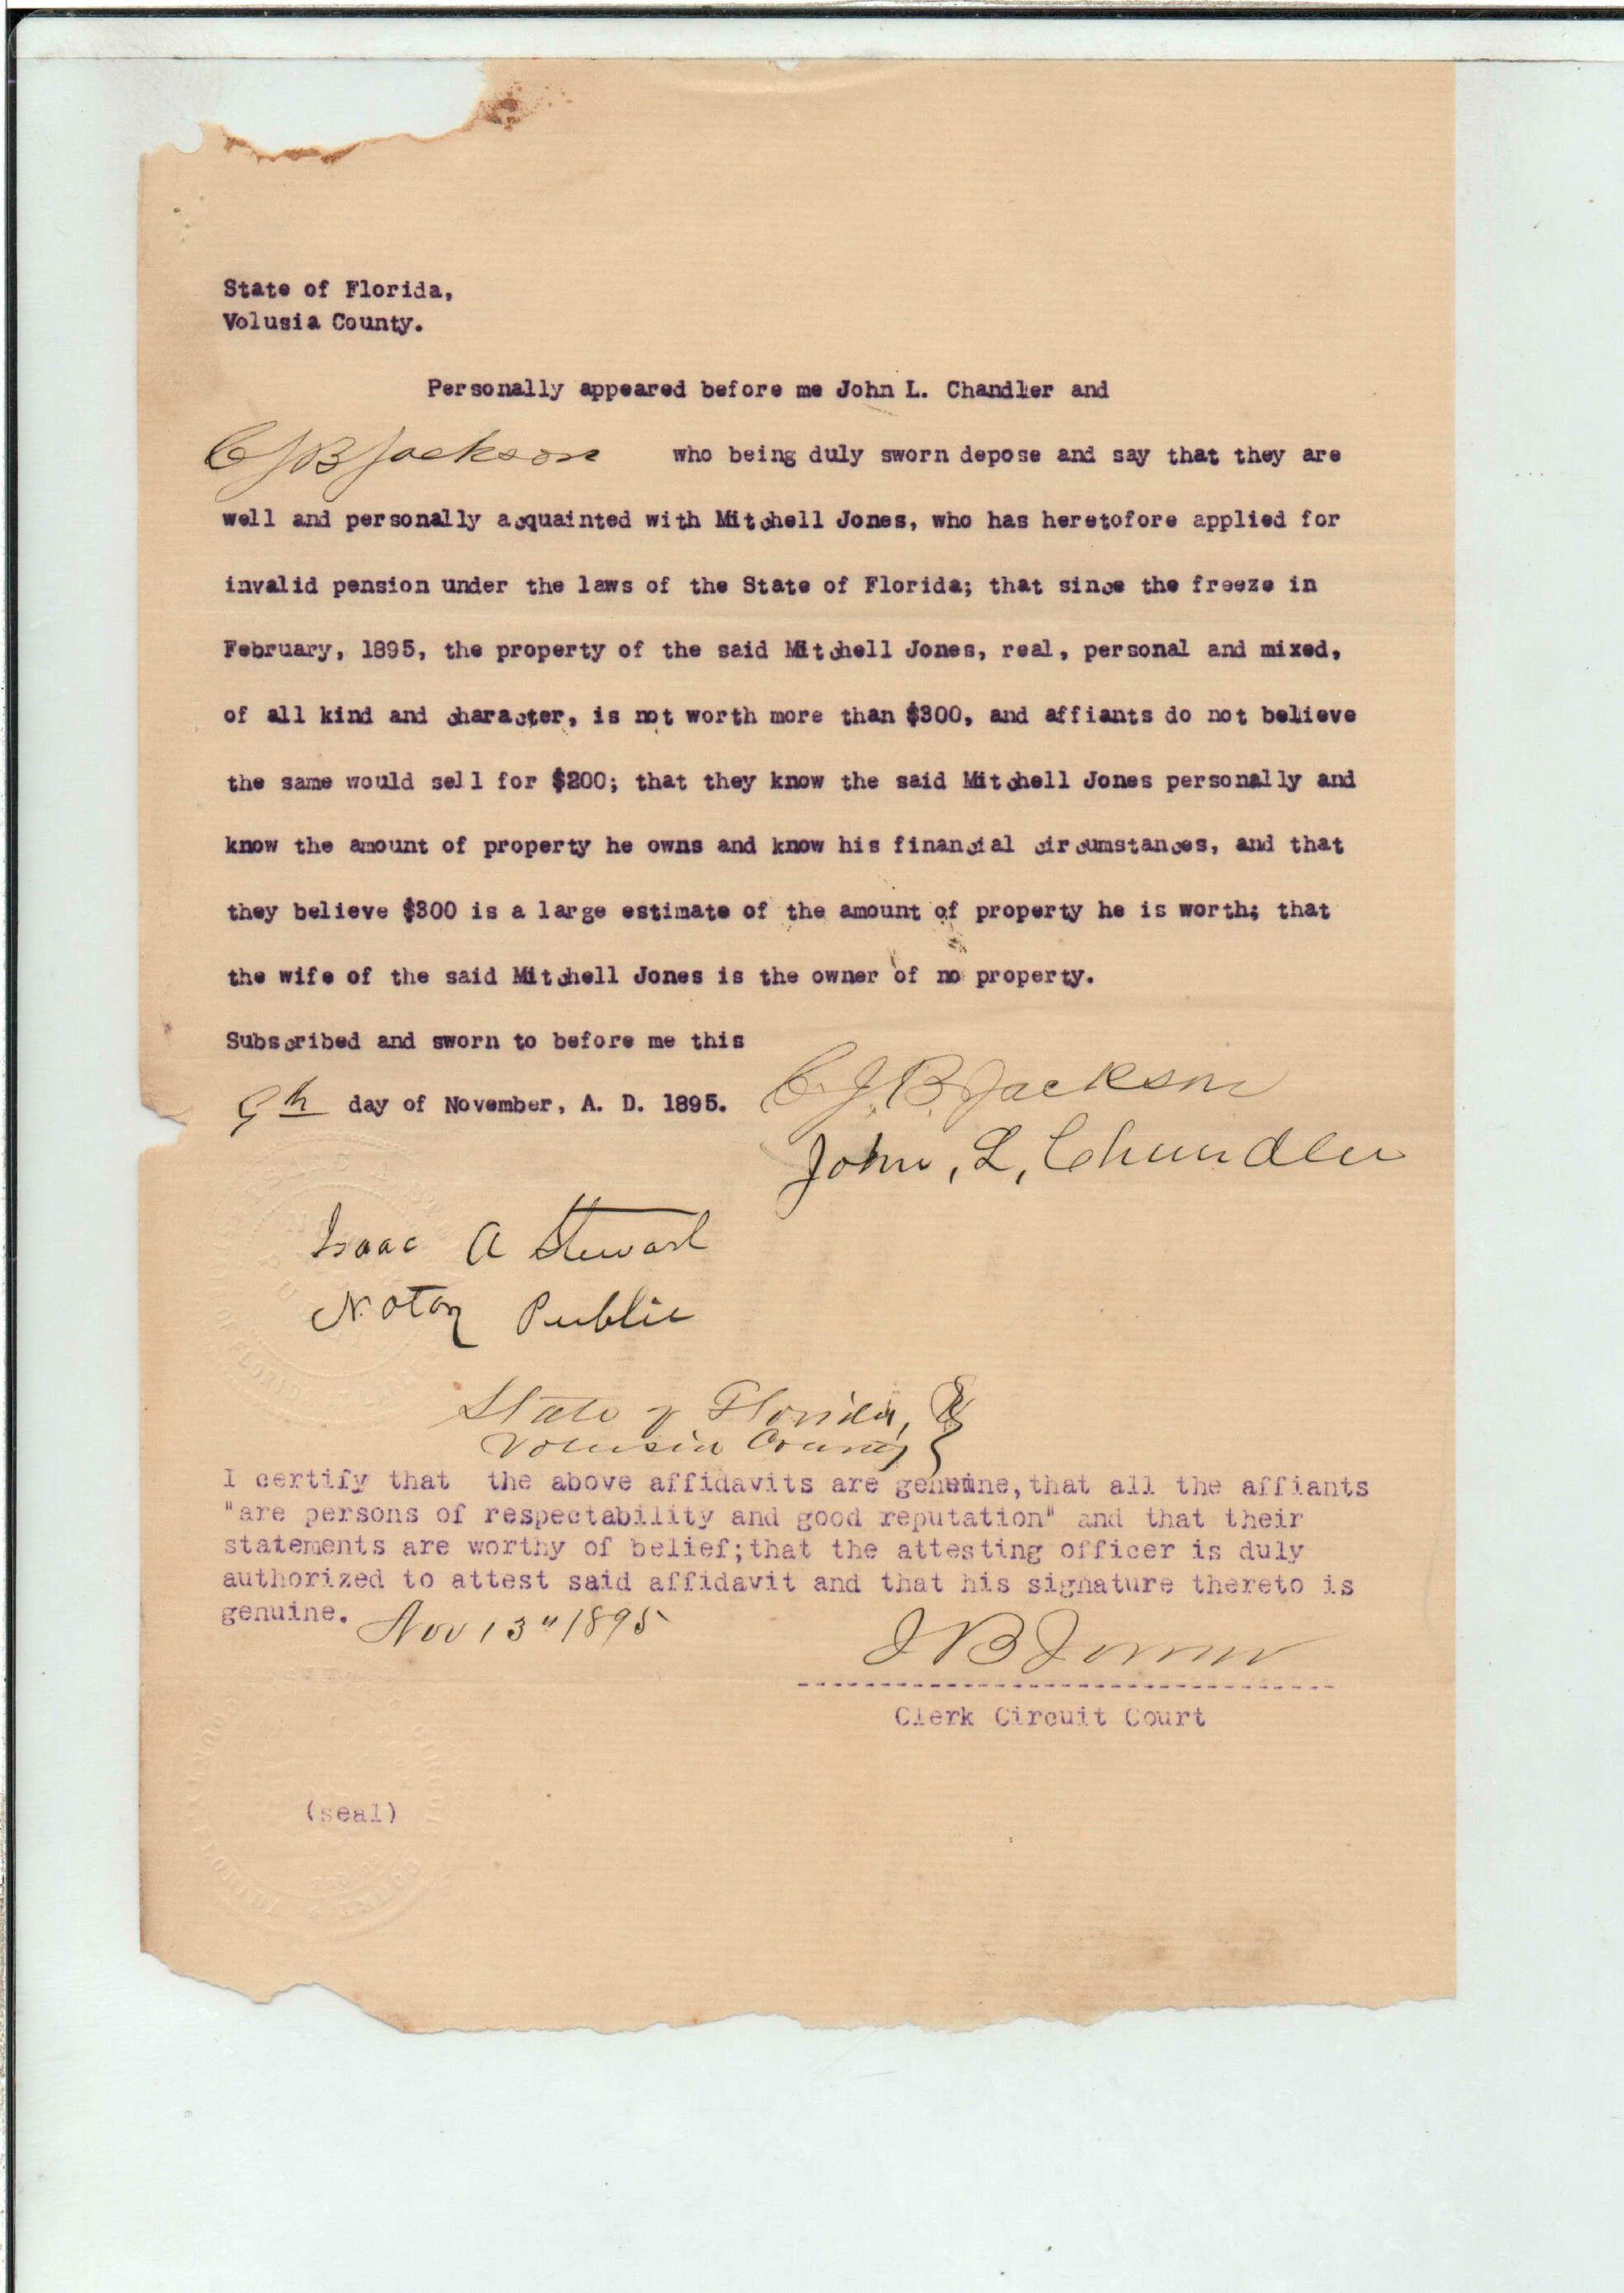 State of Florida,
Volusia County.
Personally appeared before me John L. Chandler and
C J B Jackson who being duly sworn depose and say that they are
well and personally acquainted with Mitchell Jones, who has heretofore applied for
invalid pension under the laws of the State of Florida; that since the freeze in
February, 1895, the property of the said Mitchell Jones, real, personal and mixed,
of all kind and character, is not worth more than $300, and affiants do not believe
the same would sell for $200; that they know the said Mitchell Jones personally and
know the amount of property he owns and know his financial circumstances, and that
they believe $300 is a large estimate of the amount of property he is worth; that
the wife of the said Mitchell Jones is the owner of no property.
Subscribed and sworn to before me this
9th day of November, A. D. 1895.
C. J. B. Jackson
John, L, Chandler
Isaac A Stewart
Notary Public
State of Florida,
Volusia County
I certify that the above affidavits are genuine, that all the affiants
"are persons of respectability and good reputation" and that their
statements are worthy of belief; that the attesting officer is duly
authorized to attest said affidavit and that his signature thereto is
genuine. Nov 13" 1895
J B
Clerk Circuit Court
(seal)